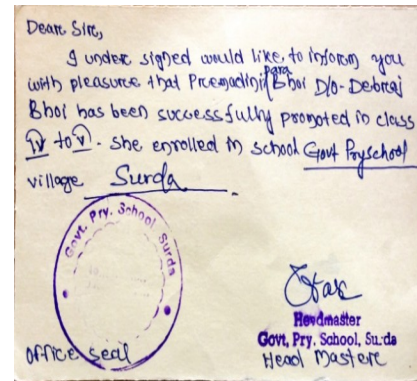 Dear Sir,
I under signed would like, to inform you
para
with pleasure that Premadini Bhoi D/o- Debraj
Bhoi has been successfully promoted in class
IV to V. she enrolled in school Govt Pryschool
village Surda.
Govt. Pry. School, Surda
Headmaster
Govt, Pry. School, Surda
office seal
Head Mastere